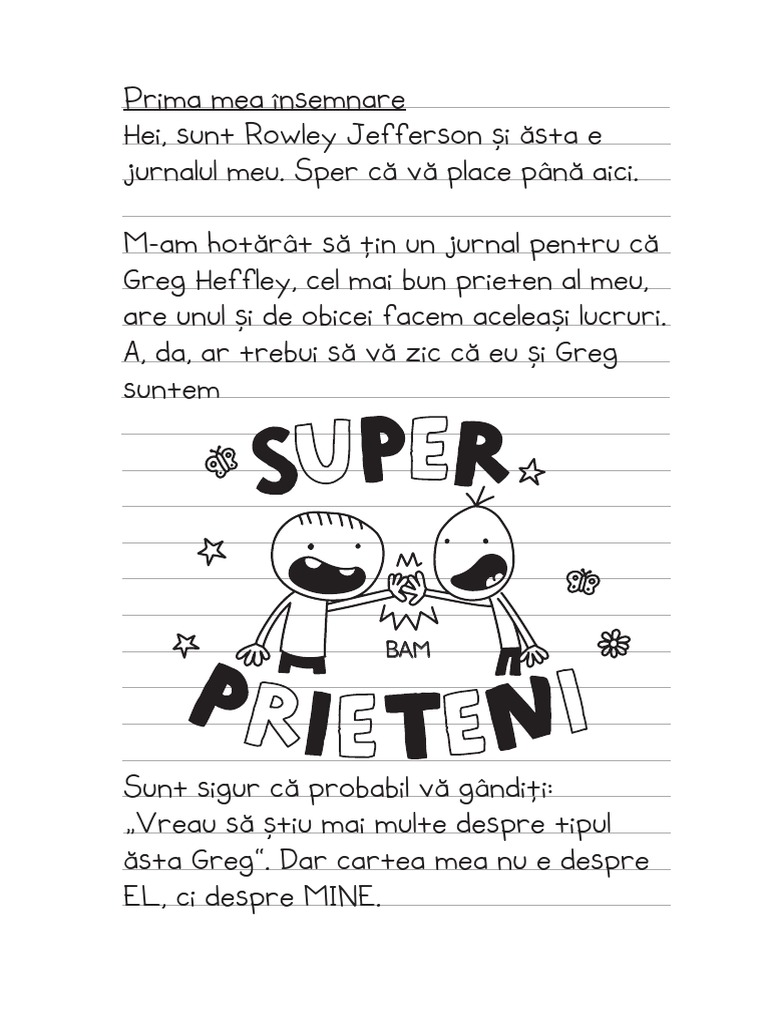 Prima mea însemnare
Hei, sunt Rowley Jefferson și ăsta e
jurnalul meu. Sper că vă place până aici.
M-am hotărât să țin un jurnal pentru că
Greg Heffley, cel mai bun prieten al meu,
are unul și de obicei facem aceleași lucruri.
A, da, ar trebui să vă zic că eu și Greg
suntem
SUPER
BAM
PRIETENI
Sunt sigur că probabil vă gândiți:
„Vreau să știu mai multe despre tipul
ăsta Greg“. Dar cartea mea nu e despre
EL, ci despre MINE.